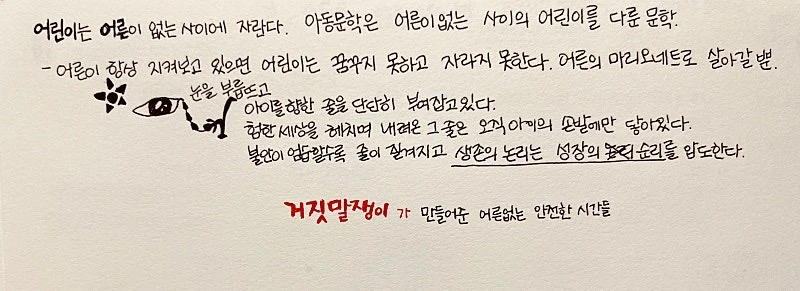 어린이는 어른이 없는 사이에 자란다. 아동문학은 어른이 없는 사이의 어린이를 다룬 문학.
- 어른이 항상 지켜보고 있으면 어린이는 꿈꾸지 못하고 자라지 못한다. 어른의 마리오네트로 살아갈 뿐.
눈을 부릅뜨고
아이를 향한 줄을 단단히 부여잡고 있다.
험한 세상을 헤치며 내려온 그 줄은 오직 아이의 손발에만 닿아있다.
불안이 엄습할수록 줄이 질겨지고 생존의 논리는 성장의 순리를 압도한다.
거짓말쟁이가 만들어준 어른없는 안전한 시간들